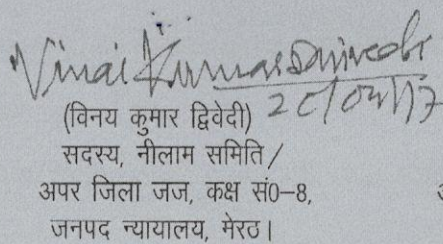 Vinai Kumar Dwivedi
(विनय कुमार द्विवेदी)
सदस्य, नीलाम समिति/
अपर जिला जज, कक्ष सं0-8,
जनपद न्यायालय, मेरठ।